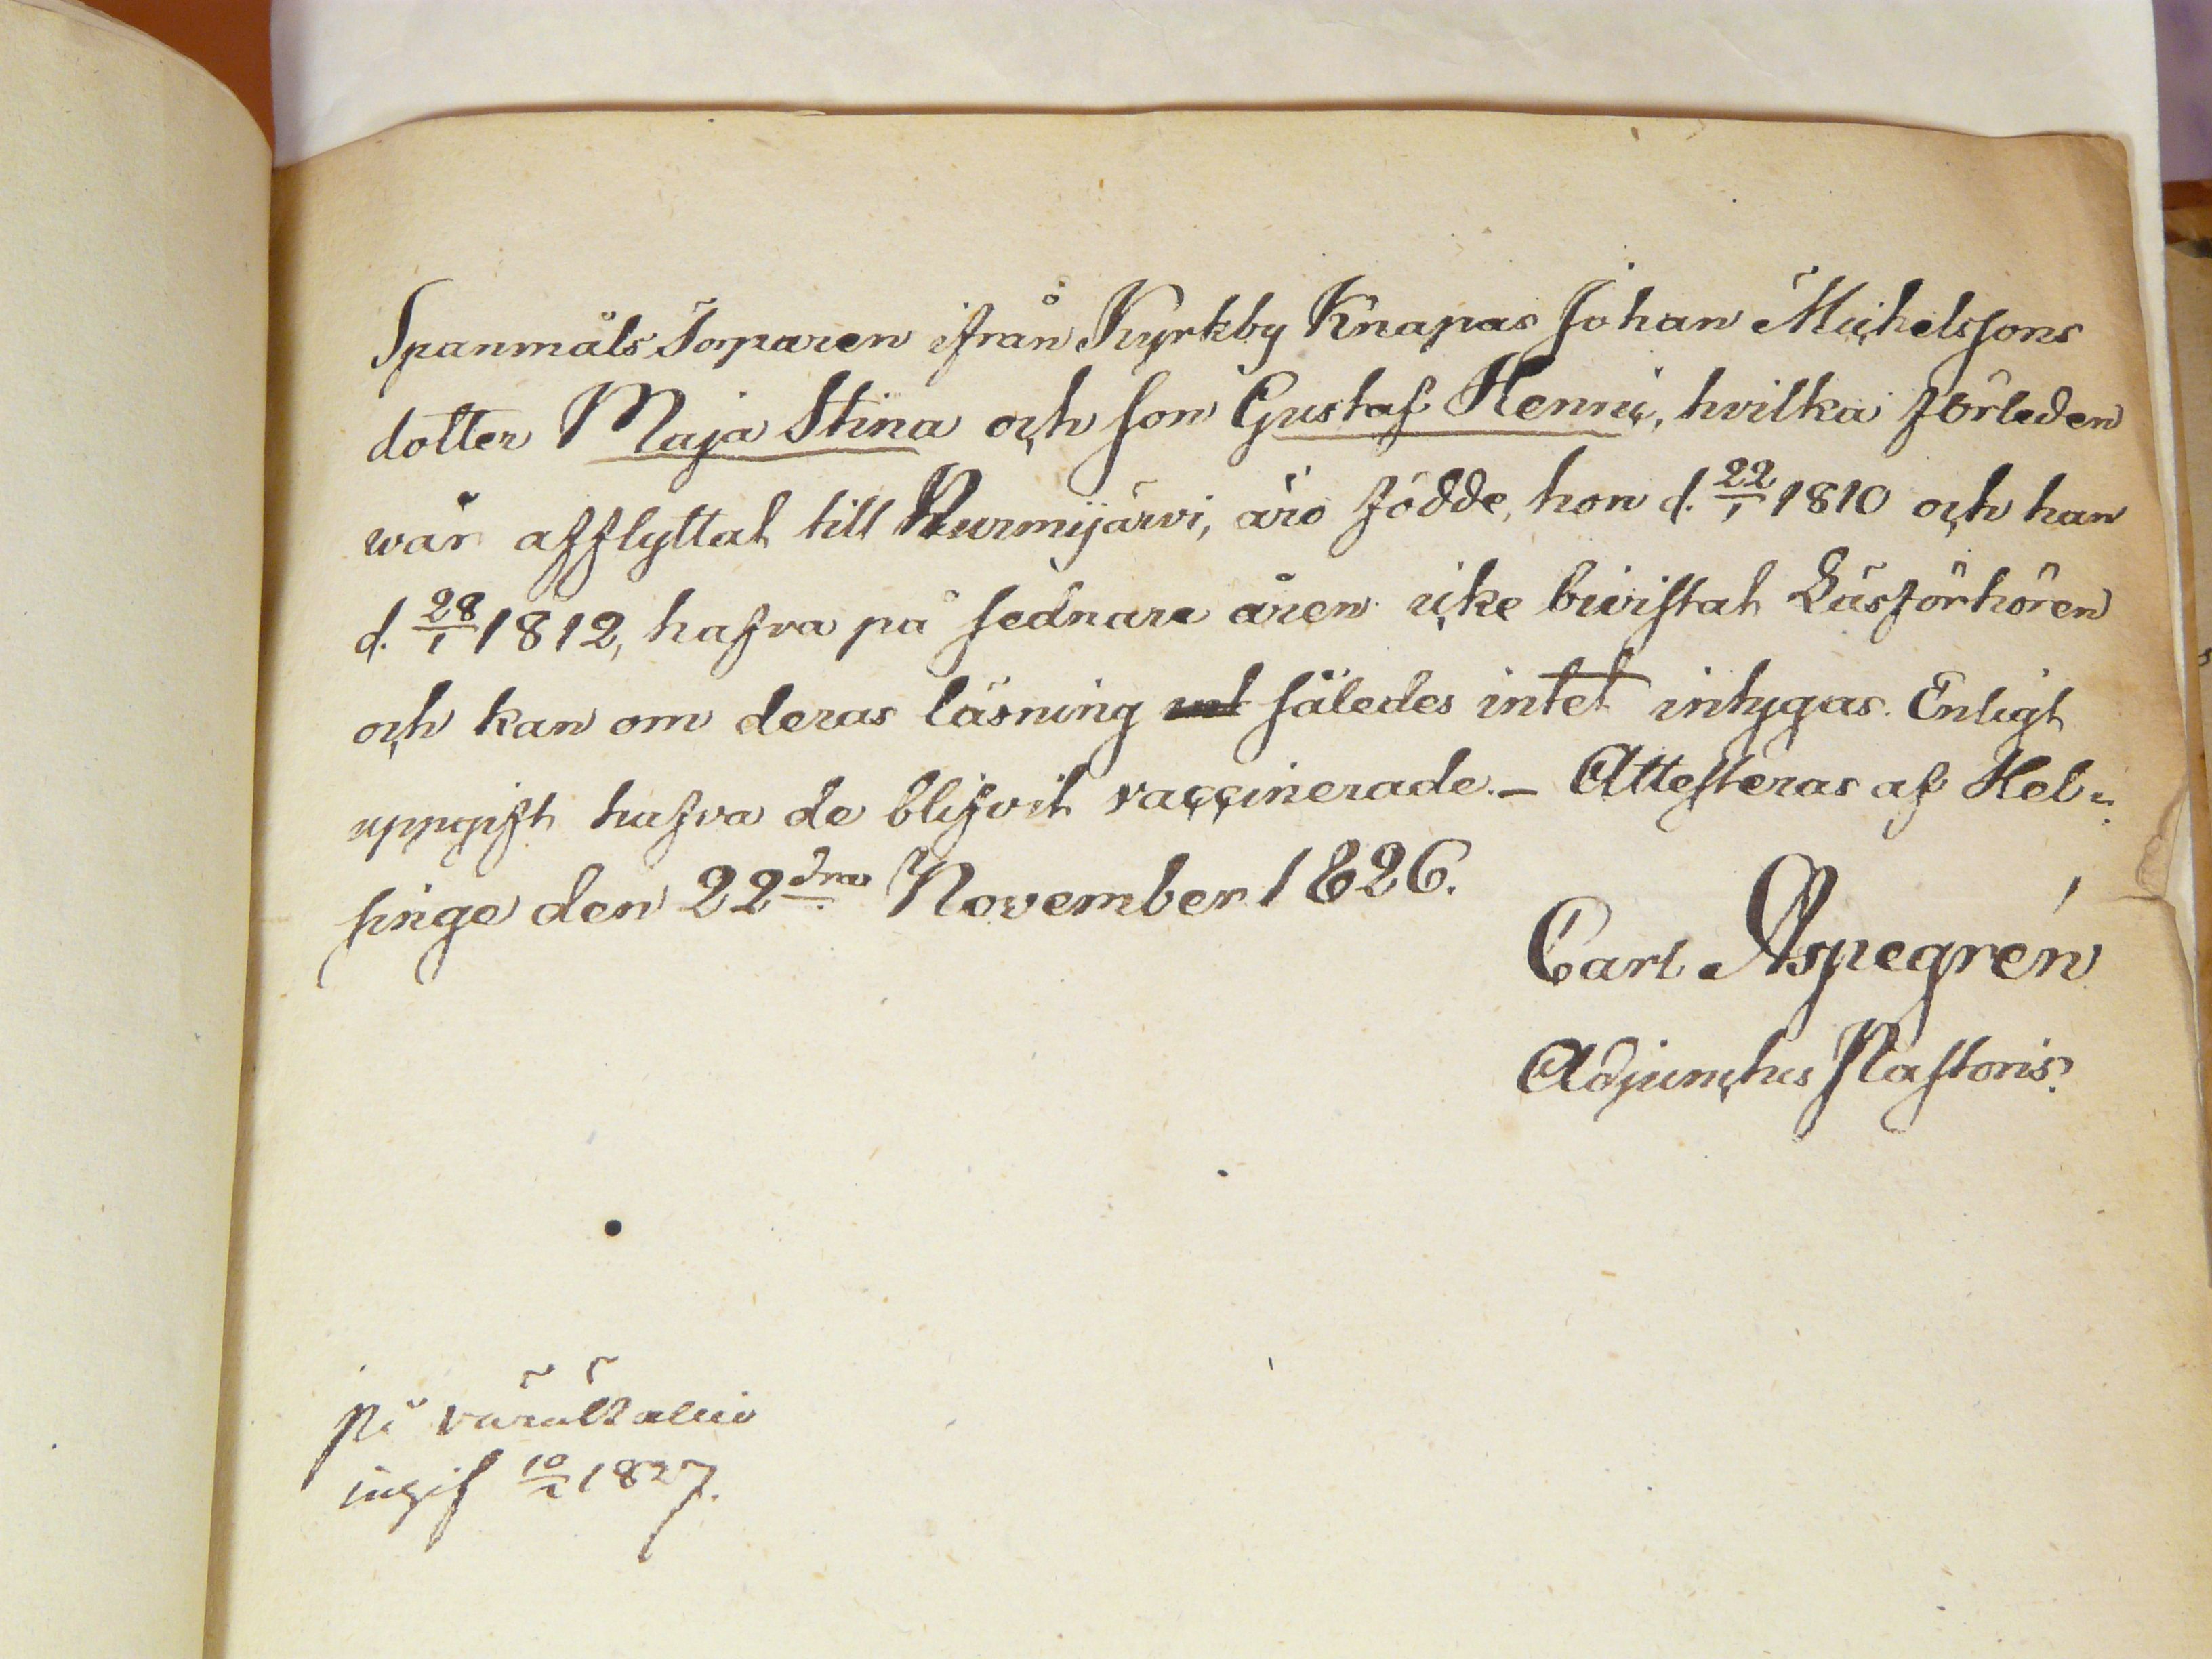 Spanmåls Torparen ifrån Kyrkby Knapas Johan Michelssons
dotter Maja Stina och son Gustaf Henric, hvilka förleden
wår afflyttat till Nurmijärvi, äro födde, hon d. 22/1 1810 och han
d. 28/1 1812, hafva på sednare åren icke bivistat Läsförhören
och kan om deras läsning således intet intygas. Enligt
uppgift hafva de blifvit vaccinerade. – Attesteras af Hel-
singe den 22dra November 1826.
Carl Aspegrén
Adjunctus Pastoris.
På
ingif 10/2 1827.